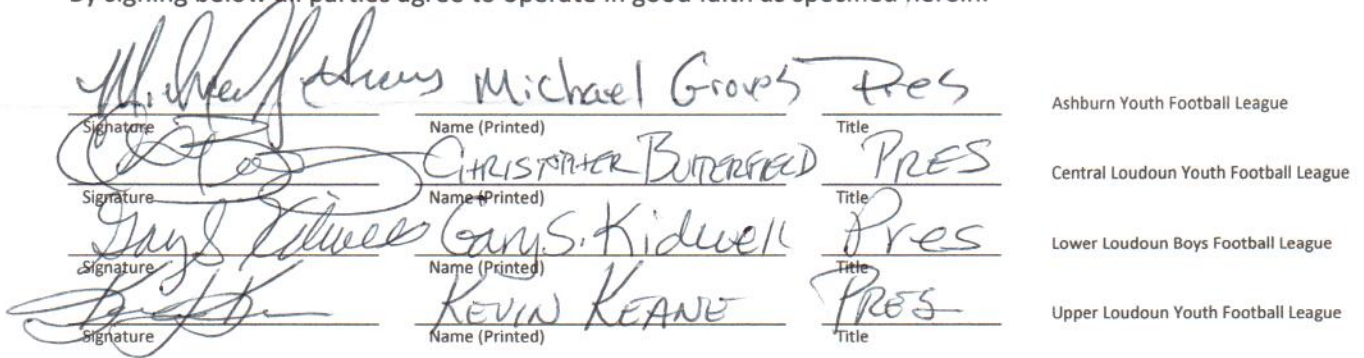 By signing below all parties agree to operate in good faith as specified herein.
Michael Groves Pres Ashburn Youth Football League
Signature Name (Printed) Title
CHRISTOPHER BUTTERFIELD PRES Central Loudoun Youth Football League
Signature Name (Printed) Title
Gary S. Kidwell Gary S. Kidwell Pres Lower Loudoun Boys Football League
Signature Name (Printed) Title
KEVIN KEANE PRES Upper Loudoun Youth Football League
Signature Name (Printed) Title